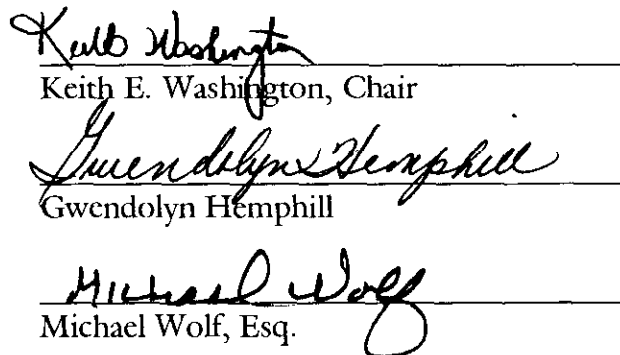 Keith Washington
Keith E. Washington, Chair
Gwendolyn Hemphill
Gwendolyn Hemphill
Michael Wolf
Michael Wolf, Esq.